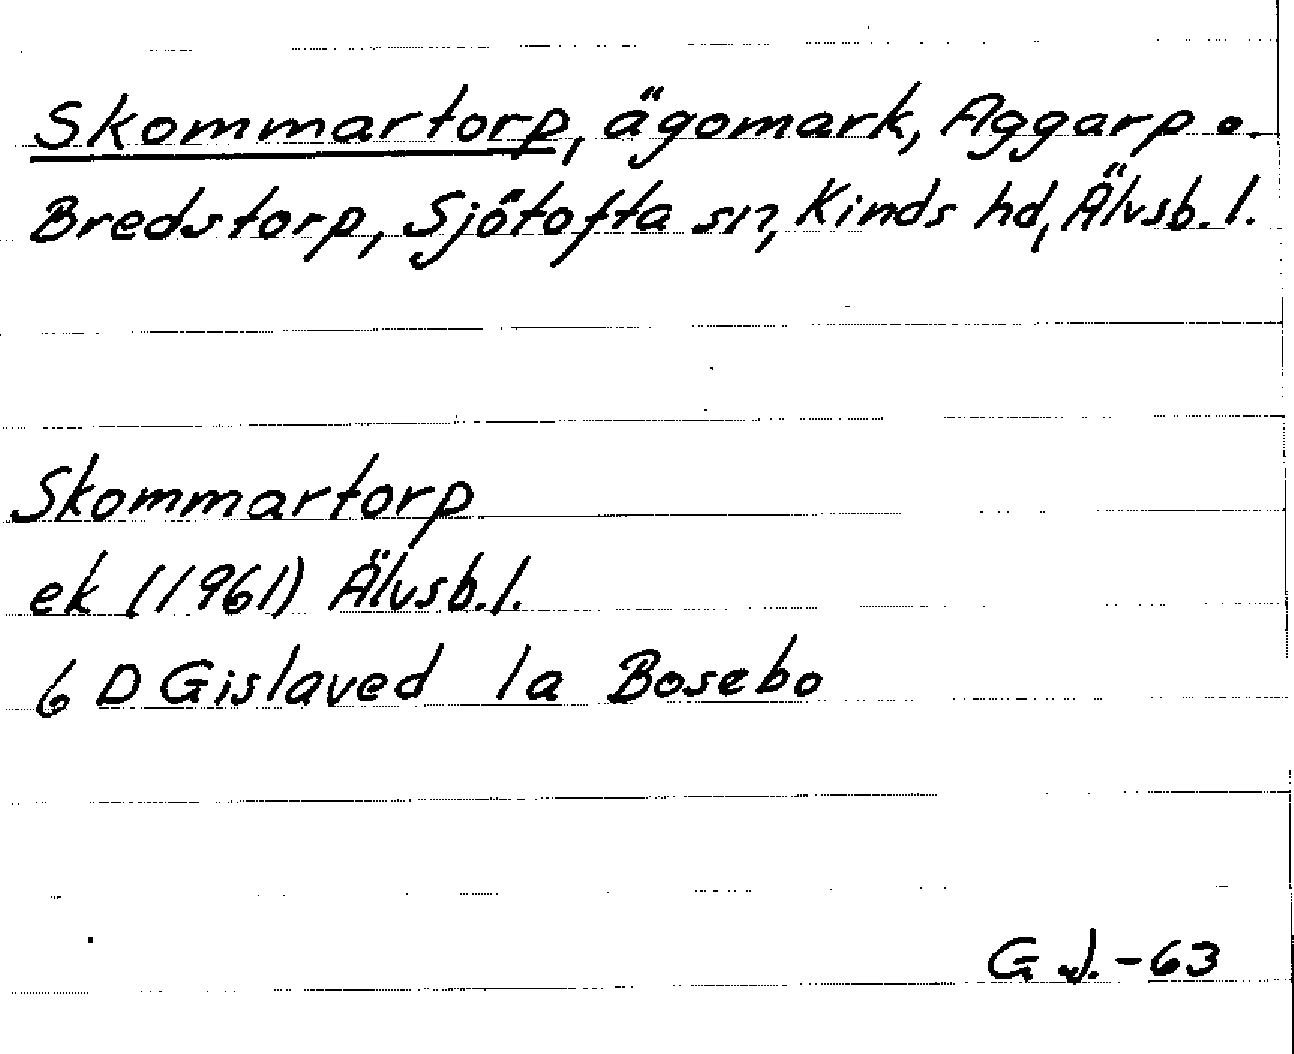 Skommartorp, ägomark, Aggarp o.
Bredstorp, Sjötofta sn, Kinds hd, Älvsb. l.
Skommartorp
ek (1961) Älvsb. l.
6 D Gislaved 1a Bosebo
G J. -63